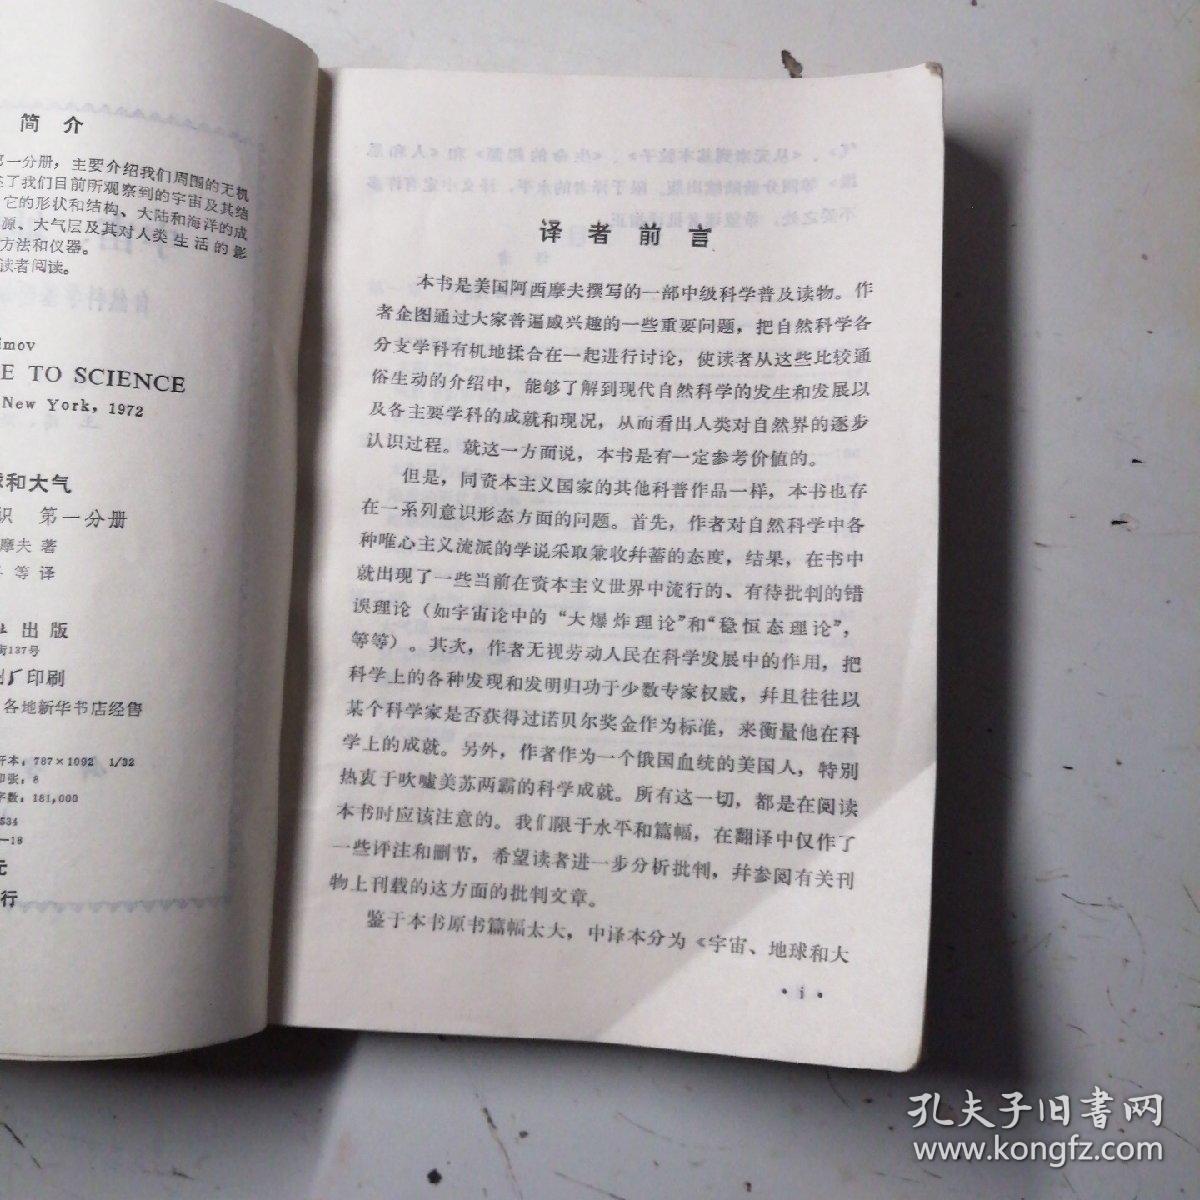 简介
第一分册，主要介绍我们周围的无机
述了我们目前所观察到的宇宙及其结
它的形状和结构、大陆和海洋的成
源、大气层及其对人类生活的影
方法和仪器。
读者阅读。
imov
E TO SCIENCE
New York, 1972
球和大气
识 第一分册
摩夫 著
等译
出版
街137号
印刷
各地新华书店经售
开本：787×1092 1/32
印张：8
字数：181,000
534
—18
元
行
译者前言
本书是美国阿西摩夫撰写的一部中级科学普及读物。作
者企图通过大家普遍感兴趣的一些重要问题，把自然科学各
分支学科有机地揉合在一起进行讨论，使读者从这些比较通
俗生动的介绍中，能够了解到现代自然科学的发生和发展以
及各主要学科的成就和现况，从而看出人类对自然界的逐步
认识过程。就这一方面说，本书是有一定参考价值的。
但是，同资本主义国家的其他科普作品一样，本书也存
在一系列意识形态方面的问题。首先，作者对自然科学中各
种唯心主义流派的学说采取兼收并蓄的态度，结果，在书中
就出现了一些当前在资本主义世界中流行的、有待批判的错
误理论（如宇宙论中的“大爆炸理论”和“稳恒态理论”，
等等）。其次，作者无视劳动人民在科学发展中的作用，把
科学上的各种发现和发明归功于少数专家权威，并且往往以
某个科学家是否获得过诺贝尔奖金作为标准，来衡量他在科
学上的成就。另外，作者作为一个俄国血统的美国人，特别
热衷于吹嘘美苏两霸的科学成就。所有这一切，都是在阅读
本书时应该注意的。我们限于水平和篇幅，在翻译中仅作了
一些评注和删节，希望读者进一步分析批判，并参阅有关刊
物上刊载的这方面的批判文章。
鉴于本书原书篇幅太大，中译本分为《宇宙、地球和大
• i •
孔夫子旧书网
www.kongfz.com